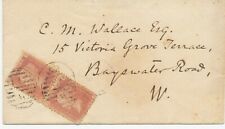 C. M. Wallace Esq.
15 Victoria Grove Terrace,
Bayswater Road,
W.